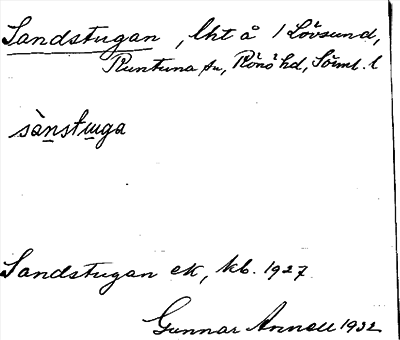 Sandstugan, lht å 1 Lövsund,
Runtuna sn, Rönö hd, Söml. l
sànstuga
Sandstugan ek, kb. 1927
Gunnar Annell 1932